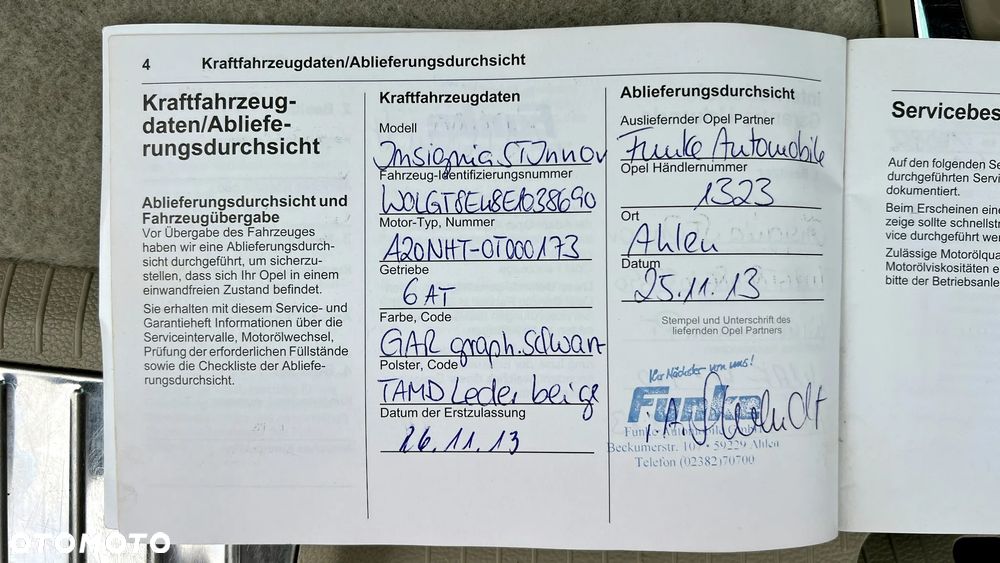 4 Kraftfahrzeugdaten/Ablieferungsdurchsicht
Kraftfahrzeug-
daten/Abliefe-
rungsdurchsicht
Ablieferungsdurchsicht und
Fahrzeugübergabe
Vor Übergabe des Fahrzeuges
haben wir eine Ablieferungsdurch-
sicht durchgeführt, um sicherzu-
stellen, dass sich Ihr Opel in einem
einwandfreien Zustand befindet.
Sie erhalten mit diesem Service- und
Garantieheft Informationen über die
Serviceintervalle, Motorölwechsel,
Prüfung der erforderlichen Füllstände
sowie die Checkliste der Abliefe-
rungsdurchsicht.
Kraftfahrzeugdaten
Modell
Insignia ST Innov
Fahrzeug-Identifizierungsnummer
W0LGT8EW8E1038690
Motor-Typ, Nummer
A20NHT-0T000173
Getriebe
6 AT
Farbe, Code
GAR graph.schwarz
Polster, Code
TAMD Leder beige
Datum der Erstzulassung
26.11.13
Ablieferungsdurchsicht
Ausliefernder Opel Partner
Funke Automobile
Opel Händlernummer
1323
Ort
Ahlen
Datum
25.11.13
Stempel und Unterschrift des
liefernden Opel Partners
Ihr Nächster von uns!
Funke
i.A.
Funke
Beckumerstr. 59229 Ahlen
Telefon (02382)70700
Servicebes
Auf den folgenden Se
durchgeführten Servic
dokumentiert.
Beim Erscheinen eine
zeige sollte schnellstm
vice durchgeführt wer
Zulässige Motorölqua
Motorölviskositäten e
bitte der Betriebsanle
OTOMOTO